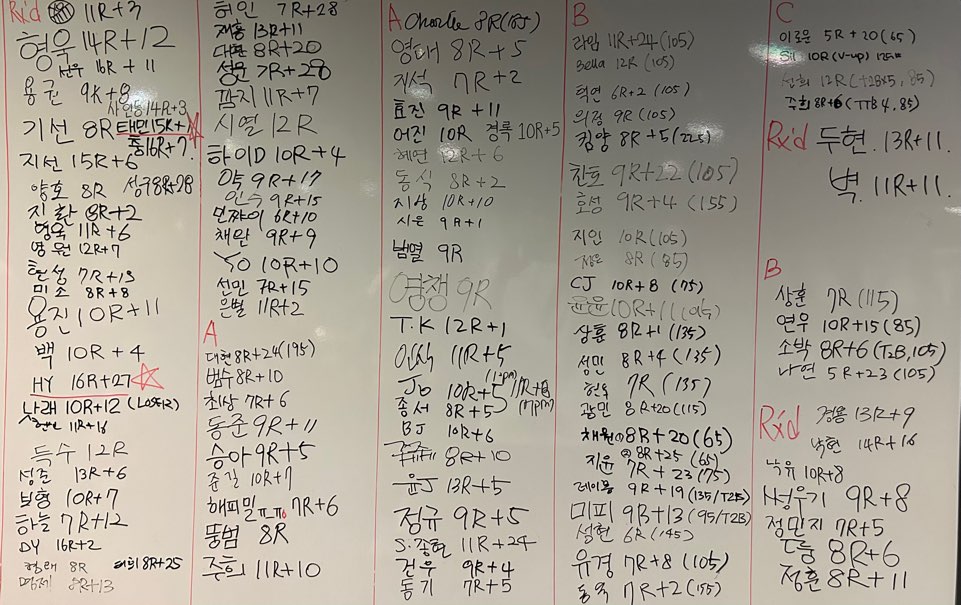 Rx'd 11R+3
형욱 14R+12
선우 16R+11
용권 9R+8
사인동 14R+3
기선 8R 태민 15R+
홍 16R+7
지선 15R+6
양호 8R 성규 8R+28
지환 8R+2
형욱 11R+6
영원 12R+7
한성 7R+13
미소 8R+8
용진 10R+11
백 10R+4
HY 16R+27
낮래 10R+12
11R+16
득수 12R
성준 13R+6
보형 10R+7
하늘 7R+12
DY 16R+2
형래 8R 여희 8R+25
명제 8R+13
허인 7R+28
재홍 13R+11
대환 8R+20
성운 7R+28
깜지 11R+7
시열 12R
하이D 10R+4
약 9R+17
인수 9R+15
민짜이 6R+10
채완 9R+9
YO 10R+10
선민 7R+15
은별 11R+2
A
대현 8R+24(195)
범수 8R+10
최상 7R+6
동준 9R+11
승아 9R+5
준길 10R+7
해피밀ㅠㅠ 7R+6
뚱범 8R
주희 11R+10
A Charlie 8R(185)
영태 8R+5
지석 7R+2
효진 9R+11
어진 10R 경록 10R+5
혜연 12R+6
동식 8R+2
지상 10R+10
시은 9R+1
범열 9R
영쟁 9R
T.K 12R+1
인식 11R+5
JD 10R+5
종서 8R+5
BJ 10R+6
8R+10
윤J 13R+5
정규 9R+5
S.종현 11R+24
건우 9R+4
동기 7R+5
B
라임 11R+24(105)
Bella 12R(105)
혁연 6R+2(105)
의정 9R(105)
킴양 8R+5(225)
찬호 9R+22(105)
효성 9R+4(155)
지인 10R(105)
정은 8R(85)
CJ 10R+8(75)
윤윤 10R+11(105)
상훈 8R+1(135)
성민 8R+4(135)
현욱 7R(135)
광민 8R+20(115)
채원 8R+20(65)
@ 8R+25(65)
지윤 7R+23(75)
제이몽 9R+19(135/T2B)
미피 9R+13(95/T2B)
설현 6R(145)
유경 7R+8(105)
동욱 7R+2(155)
C
이로운 5R+20(65)
Sil 10R(V-up)
선희 12R(T2B×5,85)
주희 8R+6(TTB4,85)
Rx'd 두현 13R+11
벽 11R+11
B
상훈 7R(115)
연우 10R+15(85)
소박 8R+6(T2B,105)
나연 5R+23(105)
Rx'd 경용 13R+9
낙현 14R+16
낙유 10R+8
성우기 9R+8
정민지 7R+5
T흠 8R+6
정훈 8R+11